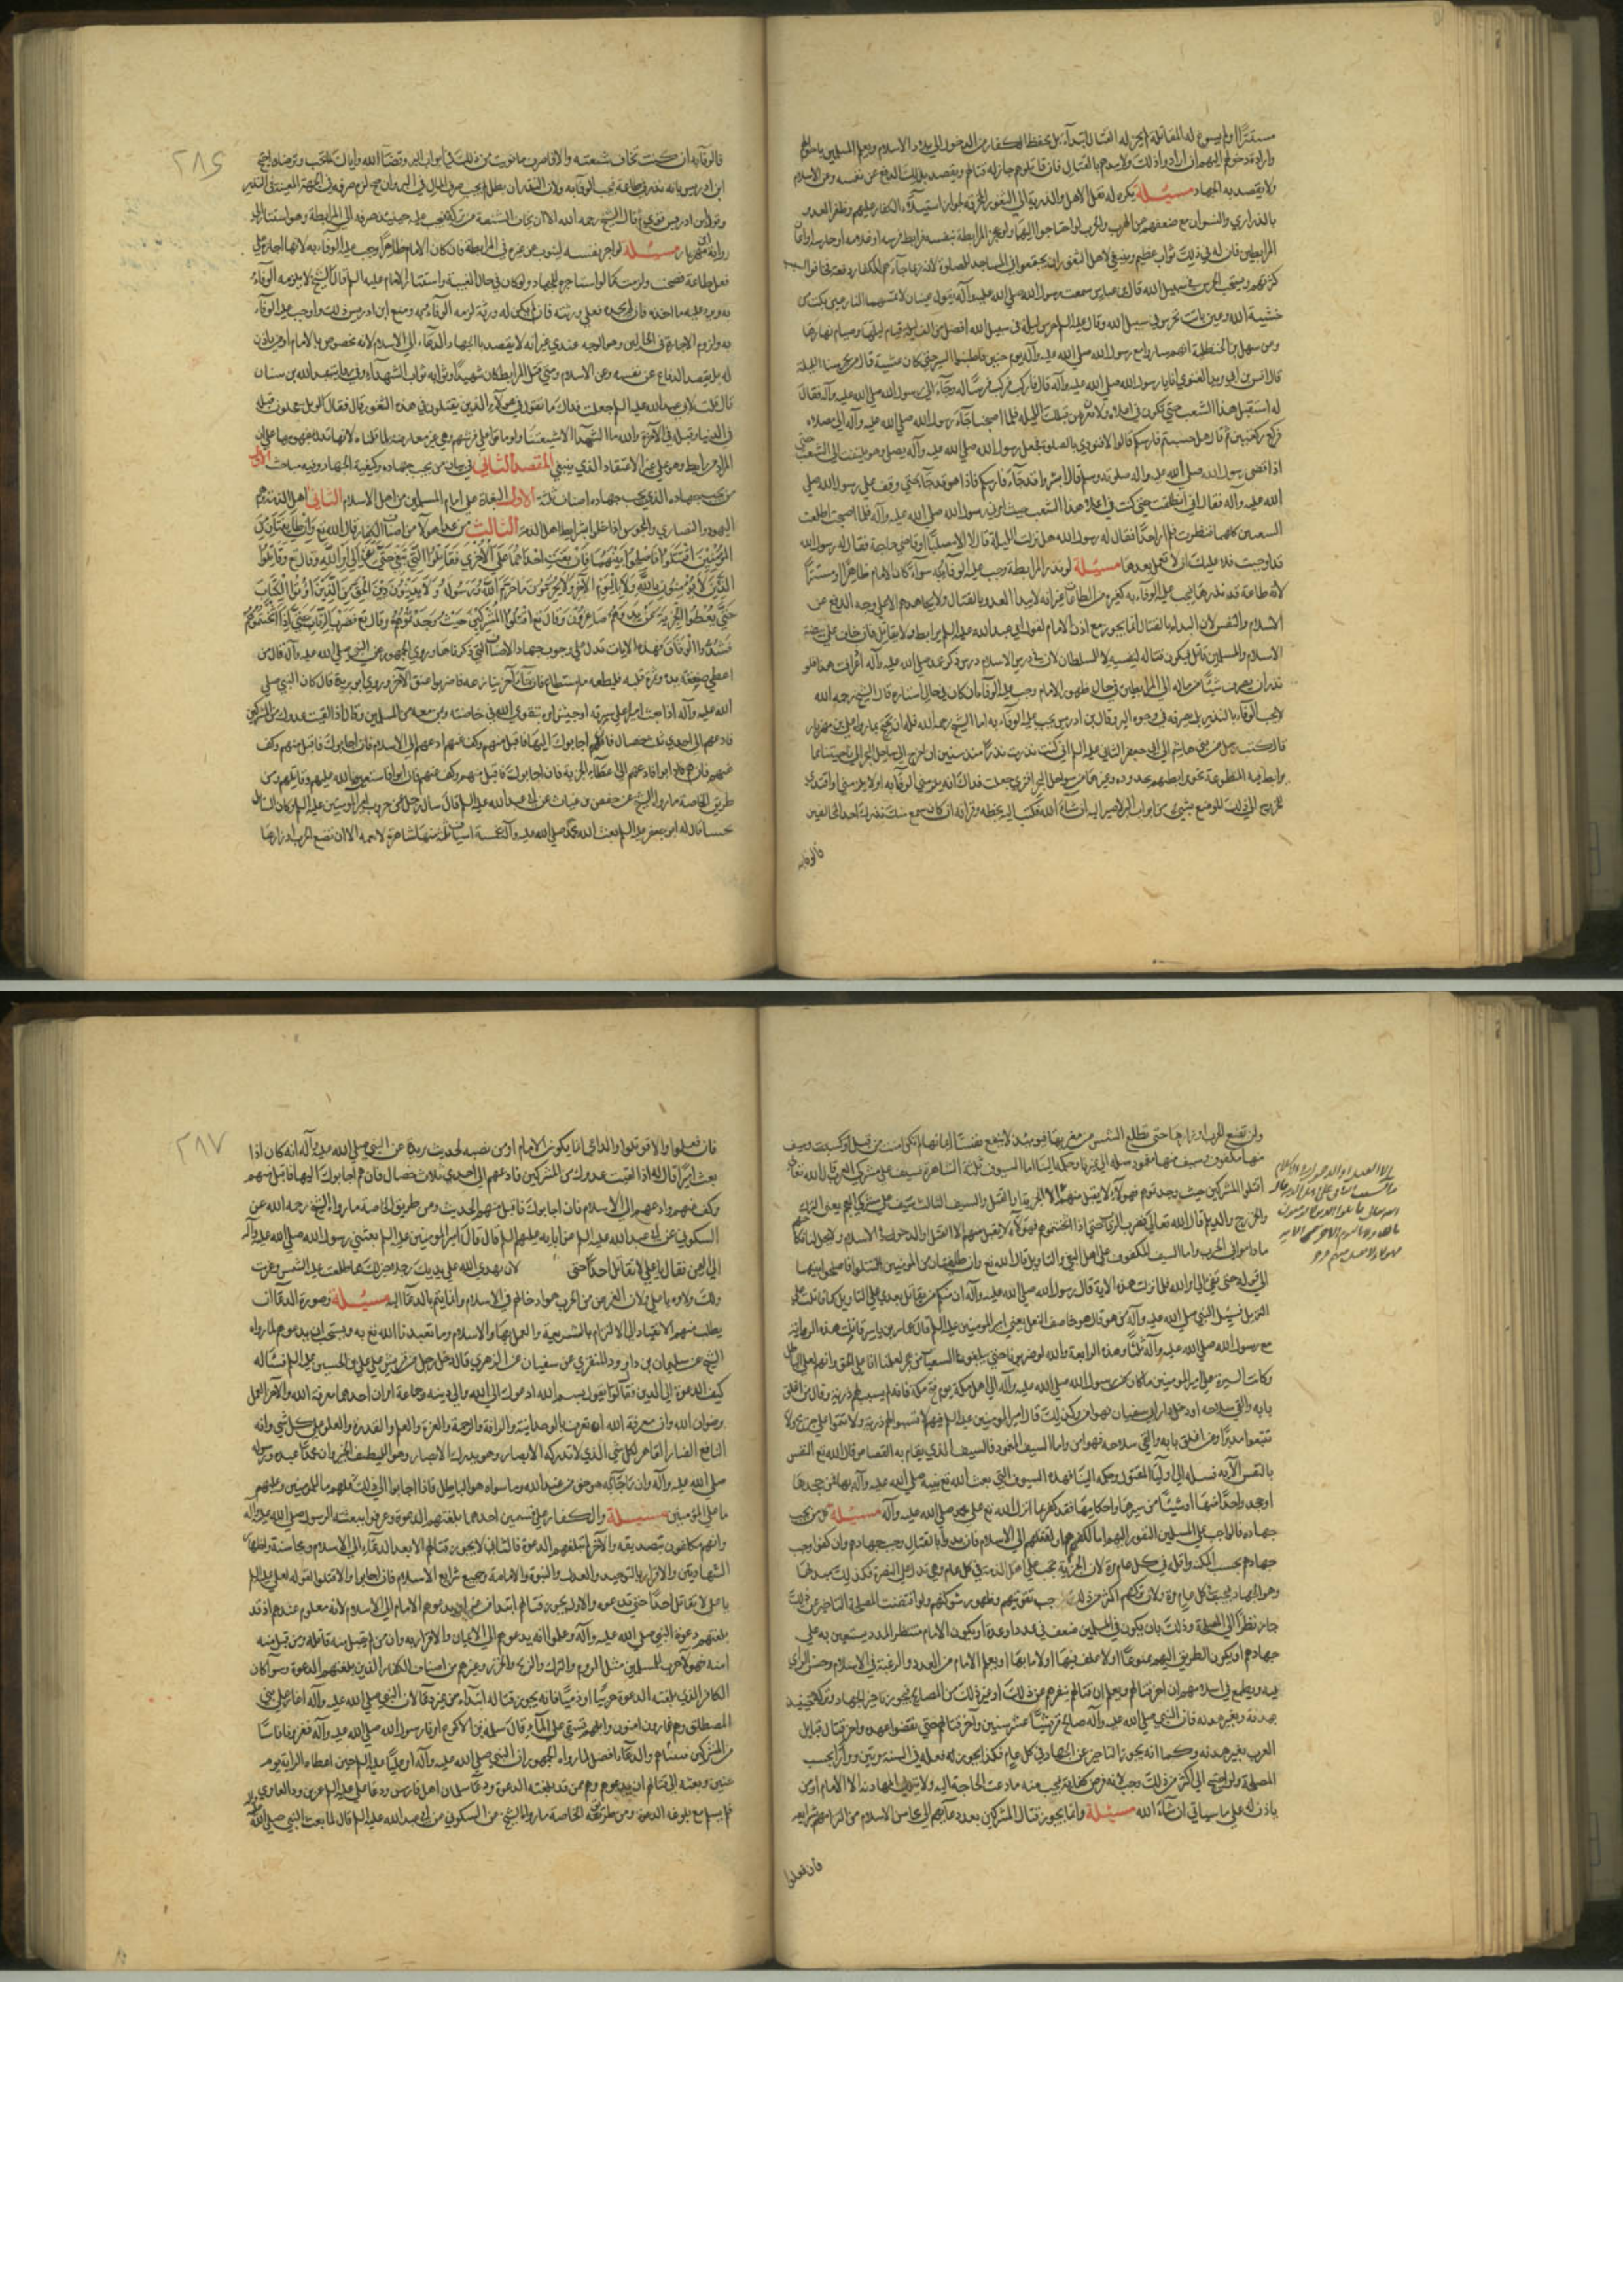 مستترًا اولم يسوغ له المقاتلة لم يجز له القتال ابتداء بل يحفظ الكفار من الدخول الى بلاد الاسلام ويعلم المسلمين باحوالهم
وارادة دخولهم اليهم ان ارادوا ذلك ولا يبدءهم بالقتال فان قاتلوهم جاز له قتالهم ويقصد بذلك الدفع عن نفسه وعن الاسلام
ولا يقصد به الجهاد مسئلة يكره له نقل الاهل والذرية الى الثغور المخوفة لجواز استيلاء الكفار عليهم وظفر العدو
بالذراري والنسوان مع ضعفهم عن الهرب والحرب لو احتاجوا اليها ولو عجز المرابطة بنفسه فرابط فرسه او غلامه او جاريته او اعان
المرابطين كان له في ذلك ثواب عظيم وينبغي لاهل الثغور ان يجتمعوا في المساجد للصلوة لانه ربما جاءهم الكفار دفعة فخافوا لسبب
كثرتهم ويستحب الحرس في سبيل الله قال ابن عباس سمعت رسول الله صلى الله عليه وآله يقول عينان لا تمسهما النار عين بكت من
خشية الله وعين باتت تحرس في سبيل الله وقال عليه السلام حرس ليلة في سبيل الله افضل من الف ليلة قيام ليلها وصيام نهارها
وعن سهل بن الحنظلية انهم ساروا مع رسول الله صلى الله عليه وآله يوم حنين فاطنبوا السير حتى كان عشية قال من يحرسنا الليلة
قال انس بن ابي مرثد الغنوي انا يا رسول الله صلى الله عليه وآله قال فاركب فركب فرسا له وجاء الى رسول الله صلى الله عليه وآله فقال
له استقبل هذا الشعب حتى تكون في اعلاه ولا نغرن من قبلك الليلة فلما اصبحنا جاء رسول الله صلى الله عليه وآله الى مصلاه
فركع ركعتين ثم قال هل حسستم فارسكم قالوا لا فنودي بالصلوة فجعل رسول الله صلى الله عليه وآله يصلي وهو يلتفت الى الشعب حتى
اذا قضى رسول الله صلى الله عليه وآله صلوته وسلم قال ابشروا قد جاء فارسكم فاذا هو قد جاء حتى وقف على رسول الله صلى
الله عليه وآله فقال اني انطلقت حتى كنت في اعلا هذا الشعب حيث امرني رسول الله صلى الله عليه وآله فلما اصبحت اطلعت
الشعبين كليهما فنظرت فلم ار احدا فقال له رسول الله هل نزلت الليلة قال لا الا مصليا او قاضي حاجة فقال له رسول الله
قد اوجبت فلا عليك ان لا تعمل بعدها مسئلة لو نذر المرابطة وجب عليه الوفاء به سواء كان الامام ظاهرا او مستترا
لانه طاعة قد نذرها فيجب عليه الوفاء به كغيره من الطاعات غير انه لا يبدا العدو بالقتال ولا يجاهدهم الا على وجه الدفع عن
الاسلام والنفس لان البداءة بالقتال انما يجوز مع اذن الامام لقول ابي عبد الله عليه السلم يرابط ولا يقاتل فان خاف على بيضة
الاسلام والمسلمين قاتل فيكون قتاله لنفسه لا للسلطان لان في دروس الاسلام دروس ذكر محمد صلى الله عليه وآله اذا عرفت هذا فلو
نذر ان يصرف شيئا من ماله الى المرابطين في حال ظهور الامام وجب عليه الوفاء وان كان في حال استتاره قال الشيخ رحمه الله
لا يجب الوفاء بالنذر بل يصرفه في وجوه البر وقال ابن ادريس يجب عليه الوفاء به اما الشيخ رحمه الله فله ان يحتج بما رواه علي بن مهزيار
قال كتب رجل من بني هاشم الى ابي جعفر الثاني عليه السلم اني كنت نذرت نذرا منذ سنين ان اخرج الى ساحل البحر الى ناحيتنا مما
يرابط فيه المتطوعة نحو مرابطتهم بجدة وغيرها من سواحل البحر افترى جعلت فداك انه يلزمني الوفاء به او لا يلزمني او افتدي
الخروج الى ذلك الموضع بشيء من ابواب البر لاصير اليه ان شاء الله فكتب اليه بخطه وقراته ان كان سمع منك نذرك احد من المخالفين
فالوفاء
٢٨٦
فالوفاء به ان كنت تخاف شنعته والا فاصرف ما نويت من ذلك في ابواب البر وفقنا الله واياك لما يحب ويرضاه احتج
ابن ادريس بانه نذر في طاعة فيجب الوفاء به ولان النذر ان بطل لم يجب صرف المال في البر وان صح لزم صرفه في الجهة المعينة في النذر
وقول ابن ادريس قوي قال الشيخ رحمه الله الا ان يخاف الشنعة من تركه فيجب عليه حينئذ صرفه الى المرابطة وهو استنادا الى
رواية ابن مهزيار مسئلة لو اجر نفسه لينوب عن غيره في المرابطة فان كان الامام ظاهرا وجب عليه الوفاء به لانها اجارة على
فعل طاعة فصحت ولزمت كما لو استاجره للجهاد ولو كان في حال الغيبة واستتار الامام عليه السلم قال الشيخ لا يلزمه الوفاء
به ويرد عليه ما اخذه فان لم يجده فعلى ورثته فان لم يكن له ورثة لزمه الوفاء به ومنع ابن ادريس ذلك واوجب عليه الوفاء
به ولزوم الاجارة في الحالين وهو الوجه عندي غير انه لا يقصد بالجهاد الدعاء الى الاسلام لانه مخصوص بالامام او من ياذن
له بل يقصد الدفاع عن نفسه وعن الاسلام ومتى قتل المرابط كان شهيدا وثوابه ثواب الشهداء وفي رواية عبد الله بن سنان
قال قلت لابي عبد الله عليه السلم جعلت فداك ما تقول في هؤلاء الذين يقتلون في هذه الثغور قال فقال الويل يتعجلون قتلة
في الدنيا وقتلة في الآخرة والله ما الشهداء الا شيعتنا ولو ماتوا على فرشهم وهي غير معارضة لما قلناه لانها تدل بمفهومها على ان
المراد من رابط وهو على غير الاعتقاد الذي ينبغي المقصد الثاني في بيان من يجب جهاده وكيفية الجهاد وفيه مباحث الاول
من يجب جهاده الذي يجب جهاده اصناف ثلثة الاول البغاة على امام المسلمين من اهل الاسلام الثاني اهل الذمة وهم
اليهود والنصارى والمجوس اذا اخلوا بشرايط اهل الذمة الثالث من عدا هؤلاء من اصناف الكفار قال الله تع وان طائفتان من
المؤمنين اقتتلوا فاصلحوا بينهما فان بغت احداهما على الاخرى فقاتلوا التي تبغي حتى تفيء الى امر الله وقال تع وقاتلوا
الذين لا يؤمنون بالله ولا باليوم الآخر ولا يحرمون ما حرم الله ورسوله ولا يدينون دين الحق من الذين اوتوا الكتاب
حتى يعطوا الجزية عن يد وهم صاغرون وقال تع اقتلوا المشركين حيث وجدتموهم وقال تع فضرب الرقاب حتى اذا اثخنتموهم
فشدوا الوثاق فهذه الايات تدل على وجوب جهاد الاصناف التي ذكرناها وروى الجمهور عن النبي صلى الله عليه وآله قال من
اعطى صفقة يده وثمرة قلبه فليطعه ما استطاع فان جاء آخر ينازعه فاضربوا عنق الآخر وروى ابو بريدة قال كان النبي صلى
الله عليه وآله اذا بعث اميرا على سرية او جيش امره بتقوى الله في خاصته ومن معه من المسلمين وقال اذا لقيت عدوك من المشركين
فادعهم الى احدى ثلث خصال فان هم اجابوك اليها فاقبل منهم وكف عنهم ادعهم الى الاسلام فان اجابوك فاقبل منهم وكف
عنهم فان هم ابوا فادعهم الى اعطاء الجزية فان اجابوك فاقبل منهم وكف عنهم فان ابوا فاستعن بالله عليهم وقاتلهم ومن
طريق الخاصة ما رواه الشيخ عن حفص بن غياث عن ابي عبد الله عليه السلم قال سال رجل عن حروب امير المؤمنين عليه السلم وكان السائل
محبنا قال له ابو جعفر عليه السلم بعث الله محمدا صلى الله عليه وآله بخمسة اسياف ثلثة منها شاهرة لا تغمد الا ان تضع الحرب اوزارها
ولن تضع الحرب اوزارها حتى تطلع الشمس من مغربها فيومئذ لا ينفع نفسا ايمانها لم تكن امنت من قبل او كسبت وسيف
منها مكفوف وسيف منها مغمود سله الى غيرنا وحكمه الينا اما السيوف الثلثة الشاهرة فسيف على مشركي العرب قال الله تعالى
اقتلوا المشركين حيث وجدتموهم فهؤلاء لا يقبل منهم الا القتل والسيف الثالث سيف على مشركي العجم يعني الترك
والخزر والديلم قال الله تعالى فضرب الرقاب حتى اذا اثخنتموهم فهؤلاء لا يقبل منهم الا القتل او الدخول في الاسلام ولا يحل لنا نكاحهم
ما داموا في الحرب واما السيف المكفوف على اهل البغي والتاويل قال الله تع وان طائفتان من المؤمنين اقتتلوا فاصلحوا بينهما
الى قوله حتى تفيء الى امر الله فلما نزلت هذه الاية قال رسول الله صلى الله عليه وآله ان منكم من يقاتل بعدي على التاويل كما قاتلت على
التنزيل فسئل النبي صلى الله عليه وآله من هو قال هو خاصف النعل يعني امير المؤمنين عليه السلم قال عمار بن ياسر قاتلت هذه الراية
مع رسول الله صلى الله عليه وآله ثلثا وهذه الرابعة والله لو ضربونا حتى يبلغونا السعفات من هجر لعلمنا انا على الحق وانهم على الباطل
وكانت السيرة من امير المؤمنين ما كان من رسول الله صلى الله عليه وآله الى اهل مكة يوم فتح مكة فانه لم يسب لهم ذرية وقال من اغلق
بابه والقى سلاحه او دخل دار ابي سفيان فهو امن وكذلك قال امير المؤمنين عليه السلم فيهم لا تسبوا لهم ذرية ولا تتموا على جريح ولا
تتبعوا مدبرا ومن اغلق بابه والقى سلاحه فهو امن واما السيف المغمود فالسيف الذي يقام به القصاص قال الله تع النفس
بالنفس الآية فسله الى اولياء المقتول وحكمه الينا فهذه السيوف التي بعث الله تع نبيه صلى الله عليه وآله بها فمن جحدها
او جحد واحدا منها او شيئا من سيرها واحكامها فقد كفر بما انزل الله تع على محمد صلى الله عليه وآله مسئلة كل من يجب
جهاده فالواجب على المسلمين النفور اليهم اما لكفهم او لنقلهم الى الاسلام فان بدءوا بالقتال وجب جهادهم وان كفوا وجب
جهادهم بحسب المكنة واقله في كل عام مرة لان الجزية تجب على اهل الذمة في كل عام وهي بدل عن النصرة فكذلك مبدلها
وهو الجهاد فيجب في كل عام مرة ولان تركهم اكثر من ذلك يوجب تقويتهم وظهور شوكتهم ولو اقتضت المصلحة التاخير عن ذلك
جاز نظرا الى المصلحة وذلك بان يكون في المسلمين ضعف في عدد او عدة او يكون الامام منتظرا لمدد يستعين به على
جهادهم او يكون الطريق اليهم ممنوعا او لا علف فيها او لا ماء بها او يعلم الامام من العدو الرغبة في الاسلام وحسن الراي
فيه ويطمع في اسلامهم ان اخر قتالهم ويعلم ان قتالهم ينفرهم عن ذلك او غير ذلك من المصالح فيجوز تاخير الجهاد وتركه حينئذ
بهدنة وبغير هدنة فان النبي صلى الله عليه وآله صالح قريشا عشر سنين واخر قتالهم حتى نقضوا عهده واخر قتال قبايل
العرب بغير هدنة وكما انه يجوز التاخير عن الجهاد في كل عام فكذا يجوز له فعله في السنة مرتين ومرارا بحسب
المصلحة ولو احتيج الى اكثر من ذلك وجب لانه فرض كفاية فيجب منه ما دعت الحاجة اليه ولا يتولى المهادنة الا الامام او من
ياذن له على ما سياتي ان شاء الله مسئلة وانما يجوز قتال المشركين بعد دعائهم الى محاسن الاسلام من التزامهم شرايعه
فان فعلوا
٢٨٧
فان فعلوا والا قوتلوا والداعي انما يكون الامام او من نصبه لحديث بريدة عن النبي صلى الله عليه وآله انه كان اذا
بعث اميرا قال له اذا لقيت عدوك من المشركين فادعهم الى احدى ثلاث خصال فان هم اجابوك اليها فاقبل منهم
وكف عنهم وادعهم الى الاسلام فان اجابوك فاقبل منهم الحديث ومن طريق الخاصة ما رواه الشيخ رحمه الله عن
السكوني عن ابي عبد الله عليه السلم عن ابايه عليهم السلم قال قال امير المؤمنين عليه السلم بعثني رسول الله صلى الله عليه وآله
الى اليمن فقال يا علي لا تقاتل احدا حتى لان يهدي الله على يديك رجلا خير لك مما طلعت عليه الشمس وغربت
ولك ولاؤه يا علي ولان الغرض من الحرب هو ادخالهم في الاسلام وانما يتم بالدعاء اليه مسئلة وصورة الدعاء ان
يطلب منهم الانقياد الى الالتزام بالشريعة والعمل بها والاسلام وما تعبدنا الله تع به ويستحب ان يدعوهم لما رواه
الشيخ عن سليمان بن داود المنقري عن سفيان عن الزهري قال دخل رجل من قريش على علي بن الحسين عليه السلم فساله
كيف الدعوة الى الدين فقال تقول بسم الله ادعوك الى الله والى دينه وجماعة امران احدهما معرفة الله والآخر العمل
برضوان الله وان معرفة الله ان تعرف بالوحدانية والرافة والرحمة والعزة والعلم والقدرة والعلو على كل شيء وانه
النافع الضار القاهر لكل شيء الذي لا تدركه الابصار وهو يدرك الابصار وهو اللطيف الخبير وان محمدا عبده ورسوله
صلى الله عليه وآله وان ما جاء به هو حق من عند الله وما سواه هو الباطل فاذا اجابوا الى ذلك فلهم ما للمؤمنين وعليهم
ما على المؤمنين مسئلة والكفار على قسمين احدهما بلغتهم الدعوة وعرفوا ببعثة الرسول صلى الله عليه وآله
وانهم مكلفون بتصديقه والآخر لم تبلغهم الدعوة فالثاني لا يجوز قتالهم الا بعد الدعاء الى الاسلام ومحاسنه واظهار
الشهادتين والاقرار بالتوحيد والعدل والنبوة والامامة وجميع شرايع الاسلام فان اجابوا والا قتلوا لقوله لعلي عليه السلم
يا علي لا تقاتل احدا حتى تدعوه والاول يجوز قتالهم ابتداء من غير ان يدعوهم الامام الى الاسلام لانه معلوم عندهم اذ قد
بلغتهم دعوة النبي صلى الله عليه وآله وعلموا انه يدعوهم الى الايمان والاقرار به وان من لم يقبل منه قاتله ومن قبل منه
امنه فهؤلاء حرب للمسلمين مثل الروم والترك والزنج والخزر وغيرهم من اصناف الكفار الذين بلغتهم الدعوة وسواء كان
الكافر الذي بلغته الدعوة حربيا او ذميا فانه يجوز قتاله ابتداء من غير دعاء لان النبي صلى الله عليه وآله اغار على بني
المصطلق وهم غارون امنون وابلهم تسقى على الماء قال سلمة بن الاكوع امرنا رسول الله صلى الله عليه وآله فغزونا ناسا
من المشركين فبيتناهم والدعاء افضل لما رواه الجمهور ان النبي صلى الله عليه وآله امر عليا عليه السلم حين اعطاه الراية يوم
حنين وبعثه الى قتالهم ان يدعوهم وهم ممن قد بلغته الدعوة ودعا سلمان اهل فارس ودعا علي عليه السلم عمرو بن ود العامري
فلم يسلم مع بلوغه الدعوة ومن طريق الخاصة ما رواه الشيخ عن السكوني عن ابي عبد الله عليه السلم قال لما بعث النبي صلى الله